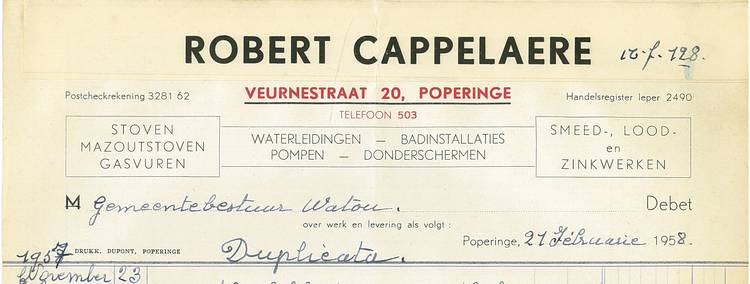 ROBERT CAPPELAERE
Postcheckrekening 3281 62 VEURNESTRAAT 20, POPERINGE Handelsregister Ieper 2490
TELEFOON 503
STOVEN
MAZOUTSTOVEN
GASVUREN
WATERLEIDINGEN — BADINSTALLATIES
POMPEN — DONDERSCHERMEN
SMEED-, LOOD-
en
ZINKWERKEN
M Gemeentebestuur Watou. Debet
over werk en levering als volgt :
Poperinge, 21 Februarie 1958.
1957 DRUKK. DUPONT, POPERINGE Duplicata.
November 23